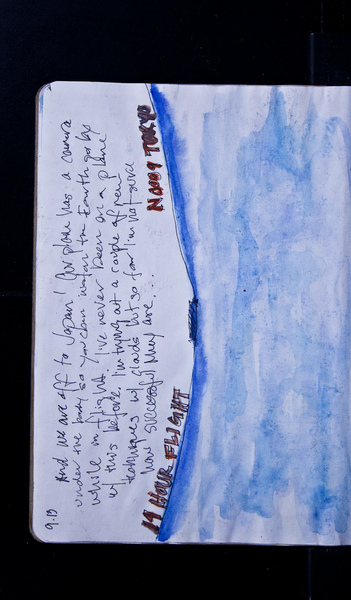 9.13
And we are off to Japan! Our plane has a camera
under the body so you can watch the Earth go by
while in flight. I've never been on a plane
w/ this before. I'm trying out a couple of paint
techniques w/ clouds but so far I'm not sure
how successful they are...
14 HOUR FLIGHT
TOKYO